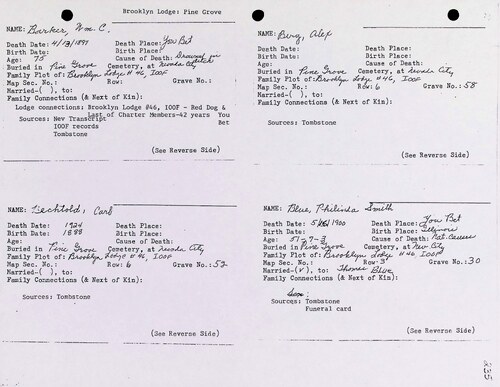 Brooklyn Lodge: Pine Grove
NAME: Barker, Wm. C.
Death Date: 4/13/1897 Death Place: You Bet
Birth Date: Birth Place:
Age: 75 Cause of Death: Drowned in ditch
Buried in Pine Grove Cemetery, at Nevada City
Family Plot of: Brooklyn Lodge #46, IOOF
Map Sec. No.: Row: Grave No.:
Married-( ), to:
Family Connections (& Next of Kin):
Lodge connections: Brooklyn Lodge #46, IOOF - Red Dog &
Last of Charter Members-42 years You
Sources: New Transcript Bet
IOOF records
Tombstone
(See Reverse Side)
NAME: Burg, Alex
Death Date: Death Place:
Birth Date: Birth Place:
Age: Cause of Death:
Buried in Pine Grove Cemetery, at Nevada City
Family Plot of: Brooklyn Lodge #46, IOOF
Map Sec. No.: Row: 6 Grave No.: 58
Married-( ), to:
Family Connections (& Next of Kin):
Sources: Tombstone
(See Reverse Side)
NAME: Bechtold, Carl
Death Date: 1924 Death Place:
Birth Date: 1888 Birth Place:
Age: Cause of Death:
Buried in Pine Grove Cemetery, at Nevada City
Family Plot of: Brooklyn Lodge #46, IOOF
Map Sec. No.: Row: 6 Grave No.: 52
Married-( ), to:
Family Connections (& Next of Kin):
Sources: Tombstone
(See Reverse Side)
NAME: Blue, Philinda Smith
Death Date: 1900 Death Place: You Bet
Birth Date: Birth Place: Illinois
Age: 57-7-3 Cause of Death:
Buried in Pine Grove Cemetery, at Nev City
Family Plot of: Brooklyn Lodge #46, IOOF
Map Sec. No.: Row: 3 Grave No.: 30
Married-(v), to: Thomas Blue
Family Connections (& Next of Kin):
Sources: Tombstone
Funeral card
(See Reverse Side)